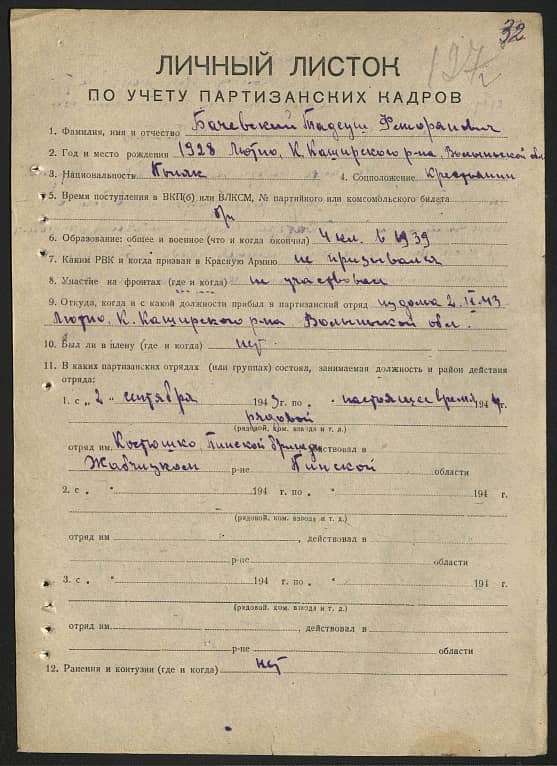 32
127
ЛИЧНЫЙ ЛИСТОК
ПО УЧЕТУ ПАРТИЗАНСКИХ КАДРОВ
1. Фамилия, имя и отчество Бачевский Тадеуш Флорянович
2. Год и место рождения 1928 Лютно, К. Каширского р-на, Волыньской обл.
3. Национальность Поляк 4. Соцположение Крестьянин
5. Время поступления в ВКП(б) или ВЛКСМ, № партийного или комсомольского билета
б/п
6. Образование: общее и военное (что и когда окончил) 4 кл. в 1939
7. Каким РВК и когда призван в Красную Армию не призывался
8. Участие на фронтах (где и когда) не участвовал
9. Откуда, когда и с какой должности прибыл в партизанский отряд из дома 2.IX.43
Лютно, К. Каширского р-на Волыньской обл.
10. Был ли в плену (где и когда) нет
11. В каких партизанских отрядах (или группах) состоял, занимаемая должность и район действия
отряда:
1. с „ 2 " сентября 1943 г. по „ " настоящее время 1944 г.
рядовой
(рядовой, ком. взвода и т. д.)
отряд им. Костюшко Пинской бригады действовал в
Жабчицком р-не Пинской области
2. с „ " 194 г. по „ " 194 г.
(рядовой, ком. взвода и т. д.)
отряд им , действовал в
р-не области
3. с „ " 194 г. по „ " 194 г.
(рядовой, ком. взвода и т. д.)
отряд им. , действовал в
р-не области
12. Ранения и контузии (где и когда) нет